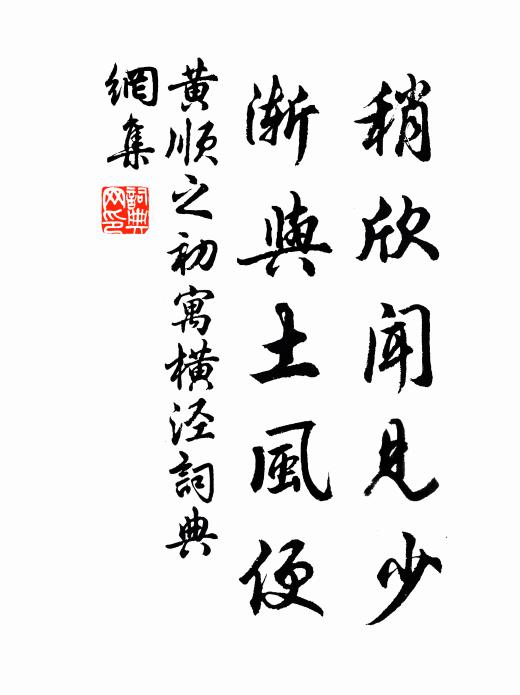 稍欣聞見少
漸與土風便
黄順之初寓横泾詞典
網集
詞典網印